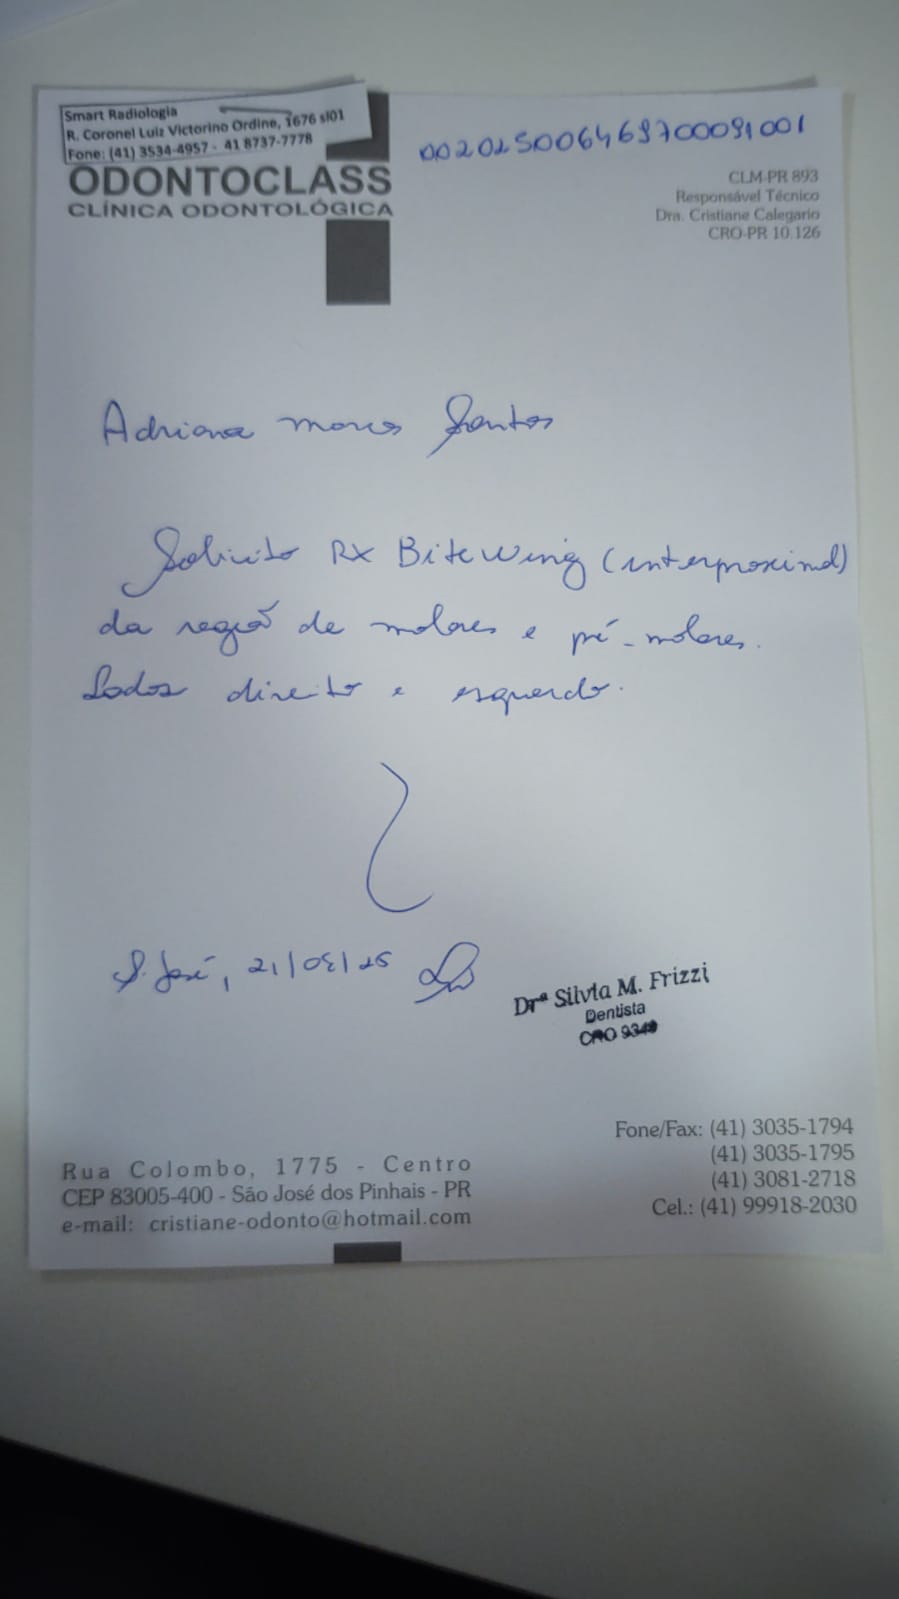 Smart Radiologia
R. Coronel Luiz Victorino Ordine, 1676 sl01
Fone: (41) 3534-4957 - 41 8737-7778
ODONTOCLASS
CLÍNICA ODONTOLÓGICA
CLM-PR 893
Responsável Técnico
Dra. Cristiane Calegario
CRO-PR 10.126
Adriana Santos
Solicito RX Bitewing (interproximal)
da região de molares e pré-molares.
Lados direito e esquerdo.
S. José,
Drª Silvia M. Frizzi
Dentista
CRO
Rua Colombo, 1775 - Centro
CEP 83005-400 - São José dos Pinhais - PR
e-mail: cristiane-odonto@hotmail.com
Fone/Fax: (41) 3035-1794
(41) 3035-1795
(41) 3081-2718
Cel.: (41) 99918-2030